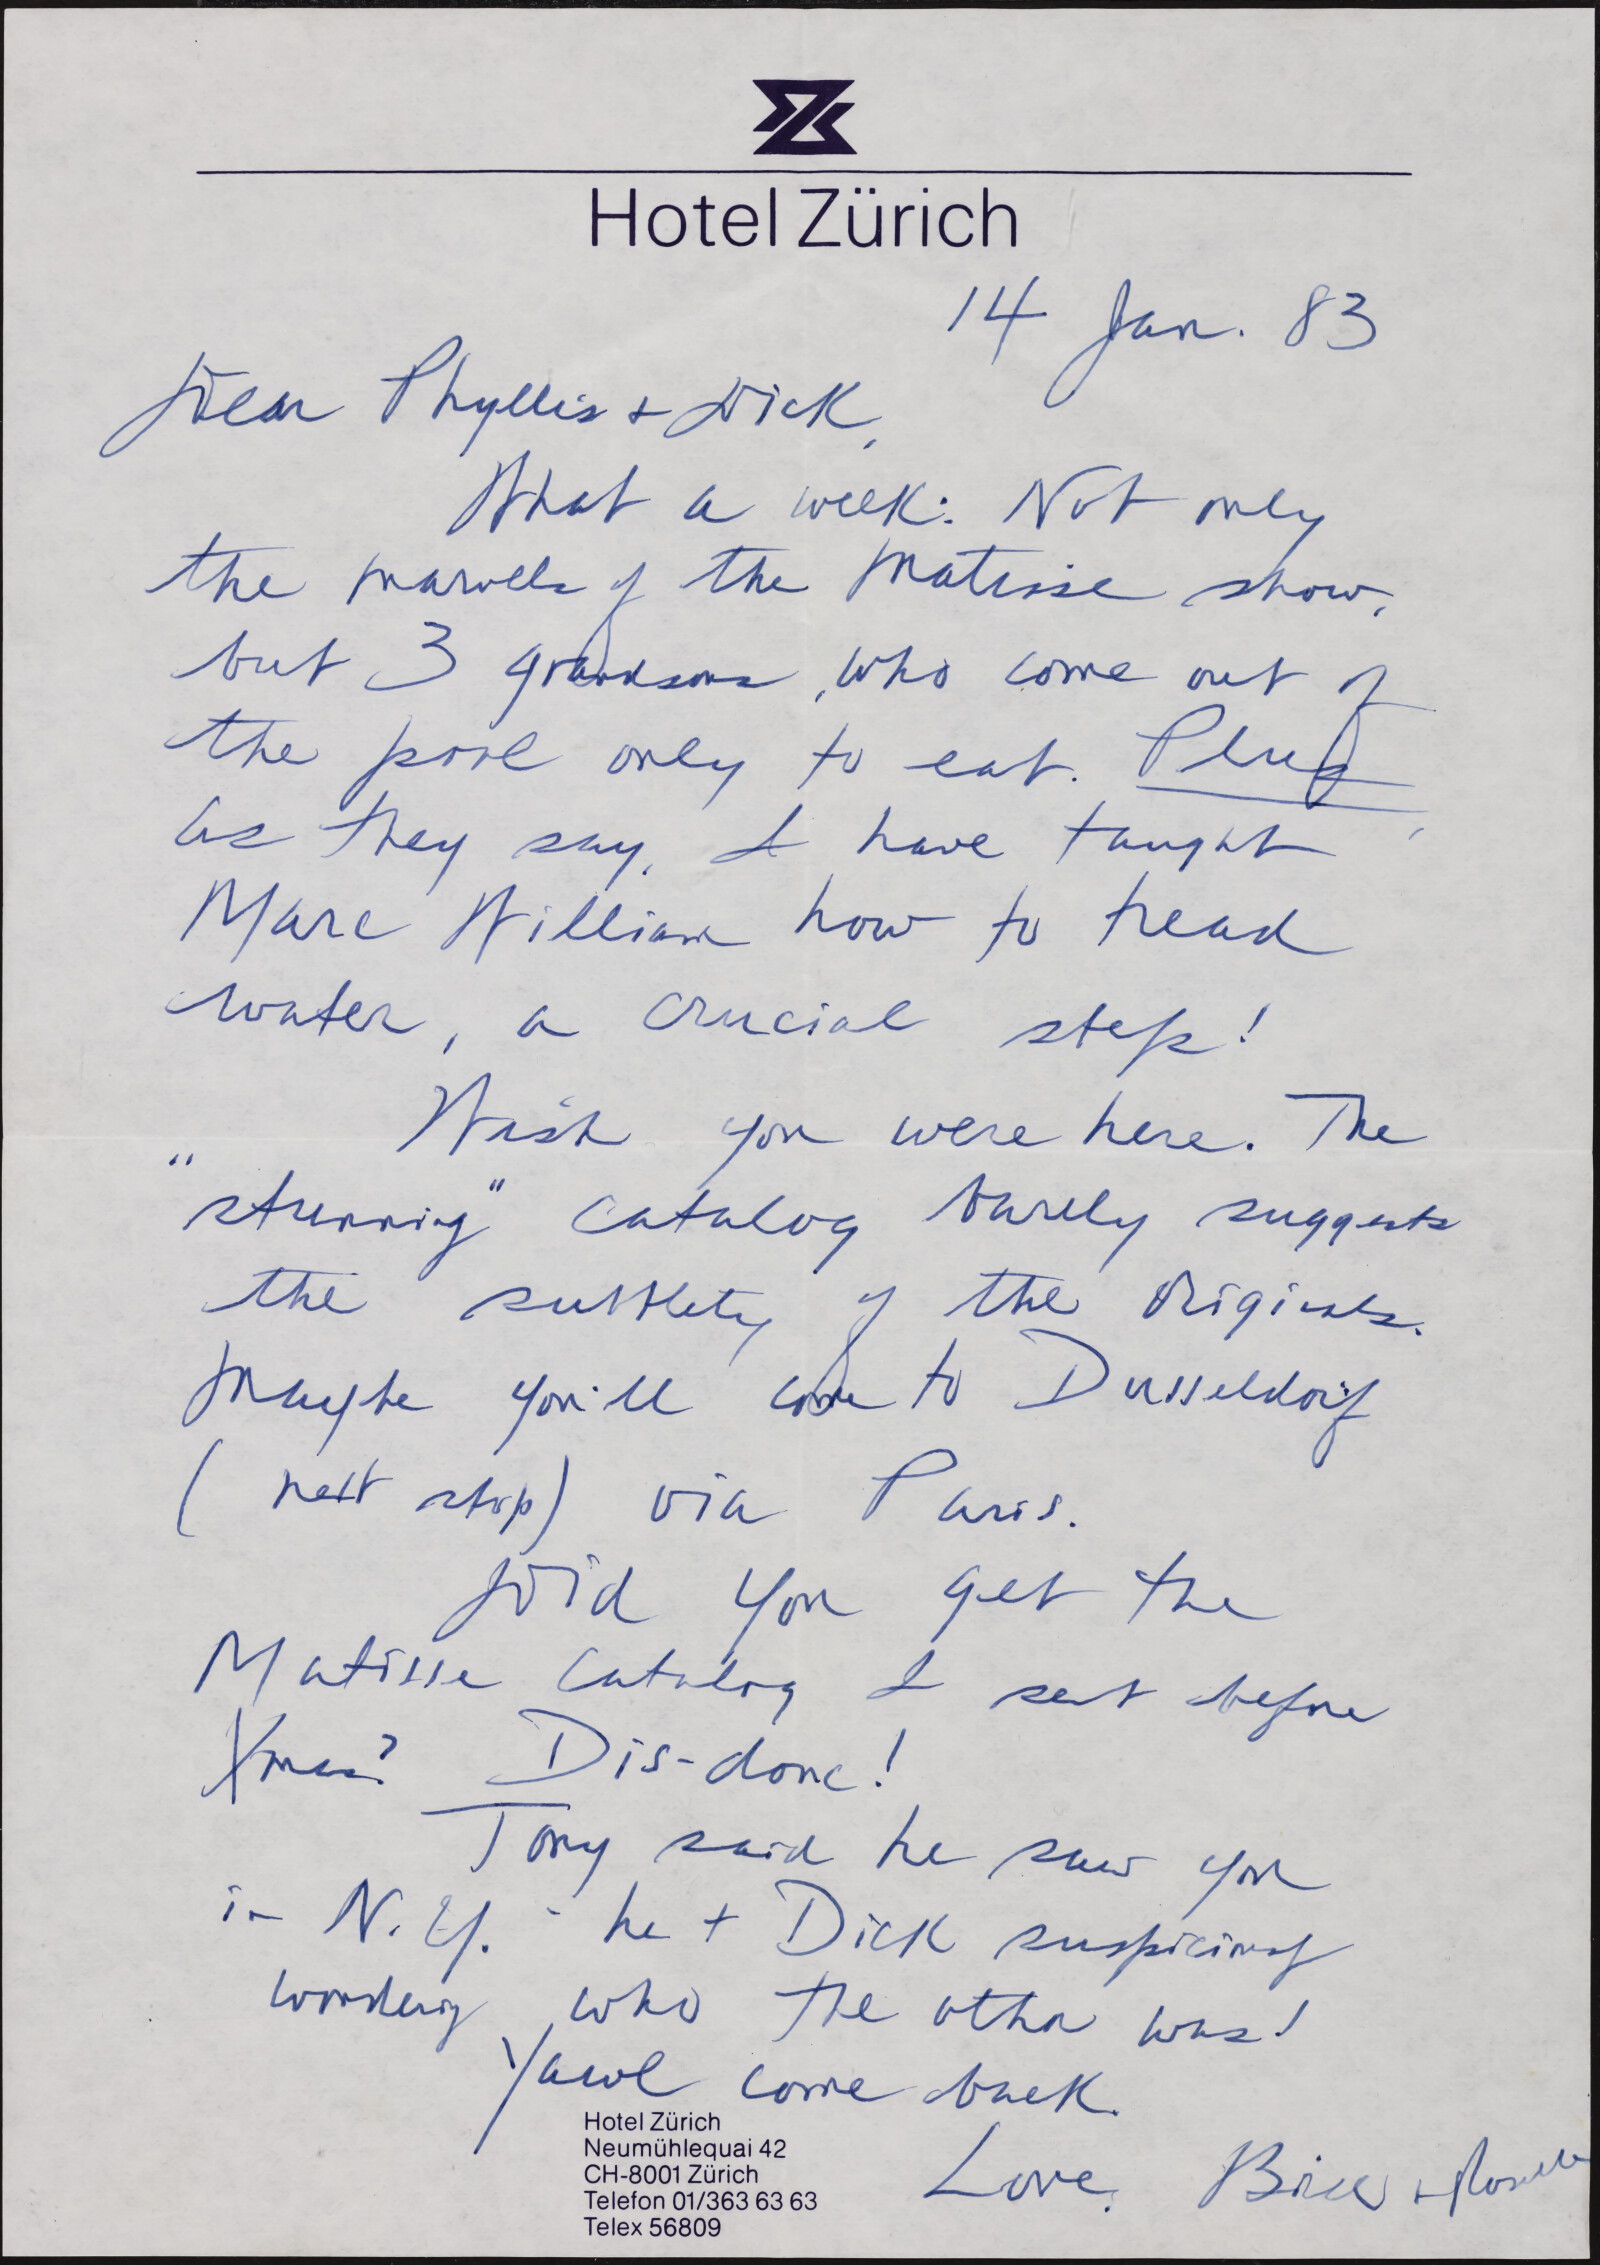 Hotel Zürich
14 Jan. 83
Dear Phyllis + Dick,
What a week: Not only
the marvels of the Matisse show,
but 3 grandsons, who come out of
the pool only to eat. Plug,
as they say. I have taught
Marc William how to tread
water, a crucial step!
Wish you were here. The
"stunning" catalog barely suggests
the subtlety of the originals.
Maybe you'll come to Dusseldorf
(next stop) via Paris.
Did you get the
Matisse catalog I sent before
Xmas? Dis-donc!
Tony said he saw you
in N.Y. - he + Dick suspiciously
wondering who the other was!
Yawl come back.
Love, Bill +
Hotel Zürich
Neumühlequai 42
CH-8001 Zürich
Telefon 01/363 63 63
Telex 56809